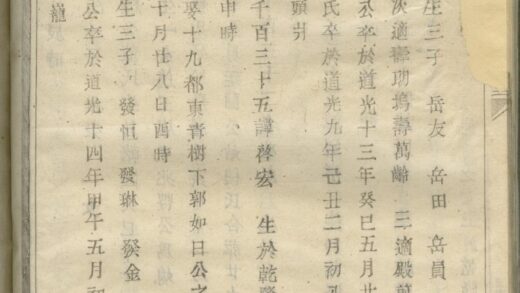 生三子 岳友 岳田 岳員
次適壽朋塢壽萬齡 三適殿萬
公卒於道光十三年癸巳五月廿
氏卒於道光九年己丑二月初
頭引
千百三十五諱啓宏 生於乾隆
申時
娶十九都東青樹下郭如日公之
十月廿八日酉時
生三子 發恒 發琳 發金
公卒於道光十四年甲午五月初
龍